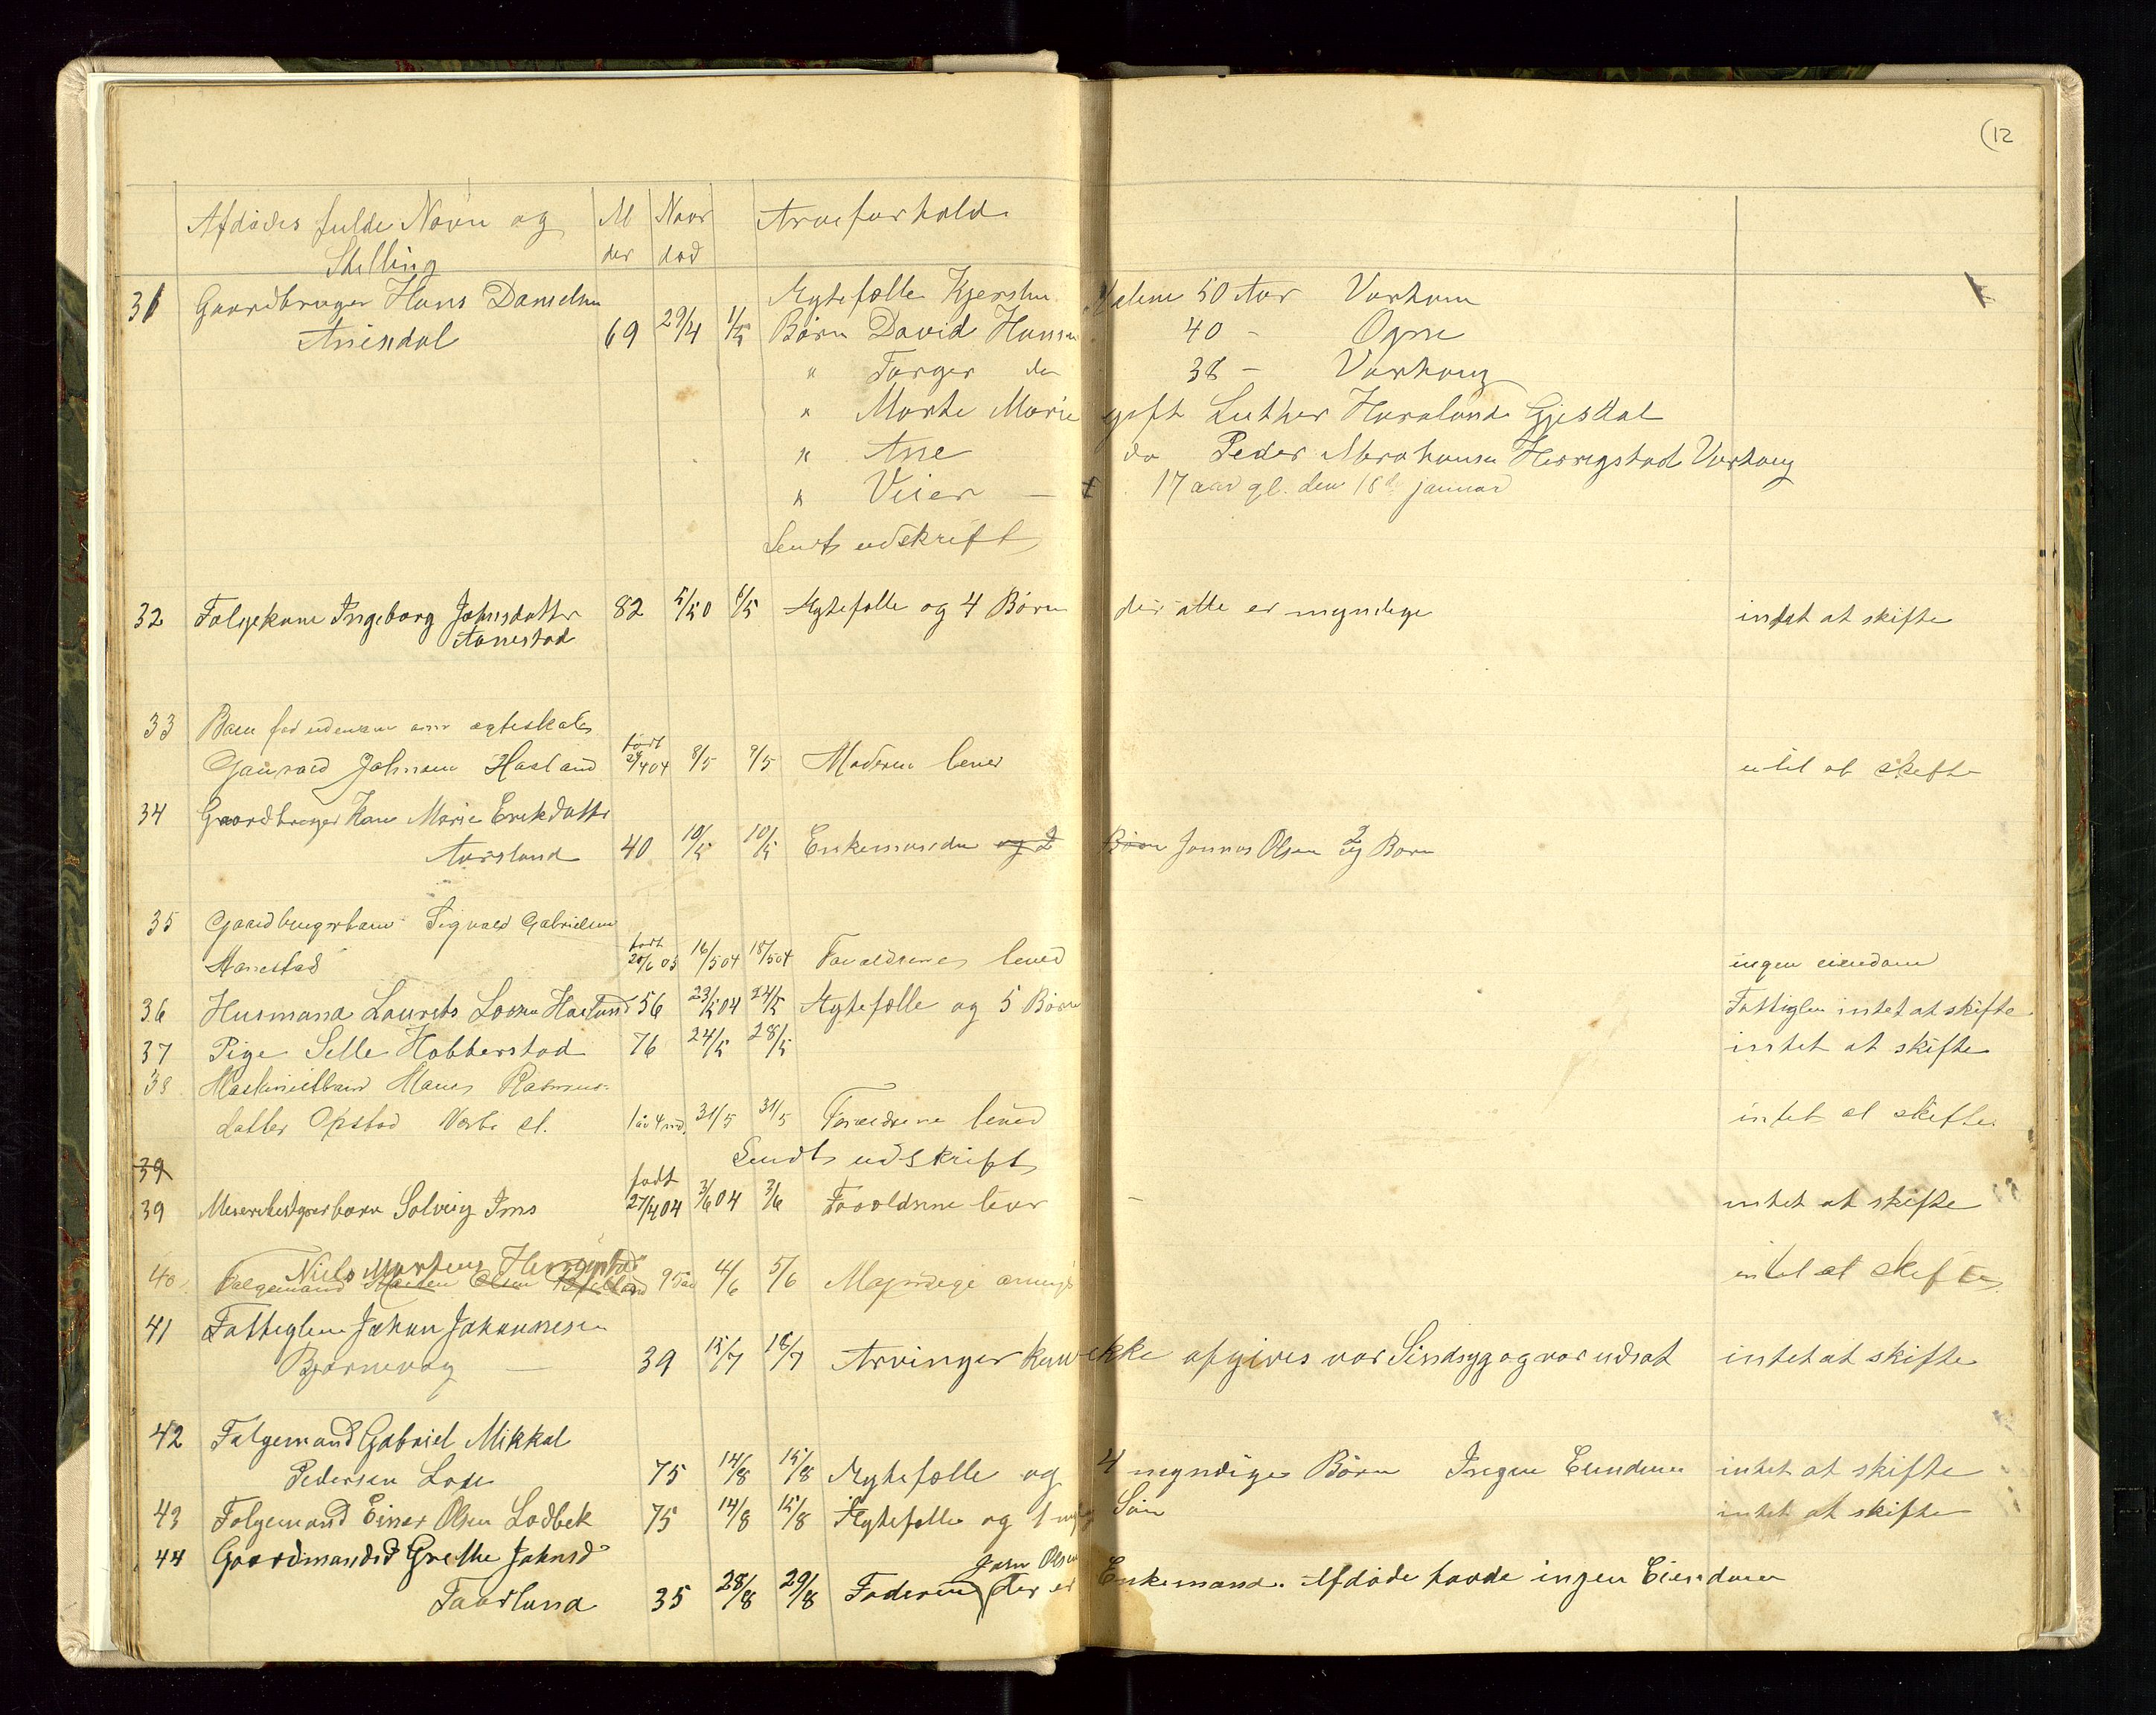 (12
Afdødes fulde Navn og Al Naar Arveforhold
Stilling der død
31 Gaardbruger Hans Danielsen Ægtefælle Kjersten Malene 50 Aar Varhaug
Aniksdal 69 29/4 1/5 Børn David Hansen 40 - Ogne
" Torger do 38 - Varhaug
" Marte Marie gift Luther Haraland Gjesdal
" Ane do Peder Abrahamsen Herrigstad Varhaug
" Vier - 17 aar gl. den 18de januar
Sendt udskrift
32 Folgekone Ingeborg Johnsdatter 82 5/5 0 6/5 Ægtefælle og 4 Børn der alle er myndige intet at skifte
Aanestad
33 Barn fød udenom ægteskab
født
Johnsen Haaland 24/4 04 8/5 9/5 Moderen lever intet at skifte
34 Gaardbruger Kone Marie Erikdatter
Aarsland 40 10/5 10/5 Enkemanden og 2 Børn Jonnas Olsen og 2 Børn
35 Gaardbrugerbarn Sigvald Gabrielsen
født
Aanestad 20/6 03 16/5 04 18/5 04 Forældrene lever ingen eiendom
36 Husmand Laurits Larsen Haaland 56 23/5 04 24/5 Ægtefælle og 5 Børn Fattiglem intet at skifte
37 Pige Selle Hobberstad 76 24/5 28/5 intet at skifte
38 Rasmus-
datter Opstad 1 år 4 md. 31/5 31/5 Forældrene lever intet at skifte
39 Sendt udskrift
født
39 Meieribestyrerbarn Solveig Ims 27/4 04 3/6 04 3/6 Forældrene lever - intet at skifte
Niels Mortens Herrigstad
40 Folgemand Olsen 95 år 4/6 5/6 Myndige arvinger intet at skifte
41 Fattiglem Johan Johannesen
Bjørnevag - 39 15/7 16/7 Arvinger kan ikke opgives var Sindsyg og var udsat intet at skifte
42 Folgemand Gabriel Mikkal
Pedersen Lode 75 14/8 15/8 Ægtefælle og 4 myndige Børn Ingen Eiendom intet at skifte
43 Folgemand Einar Olsen Lodbek 75 14/8 15/8 Ægtefælle og 1 myndig Søn intet at skifte
44 Gaardmandsd Grethe Johnsd
John Olsen
Taarland 35 28/8 29/8 Faderen der er Enkemand. Afdøde havde ingen Eiendom